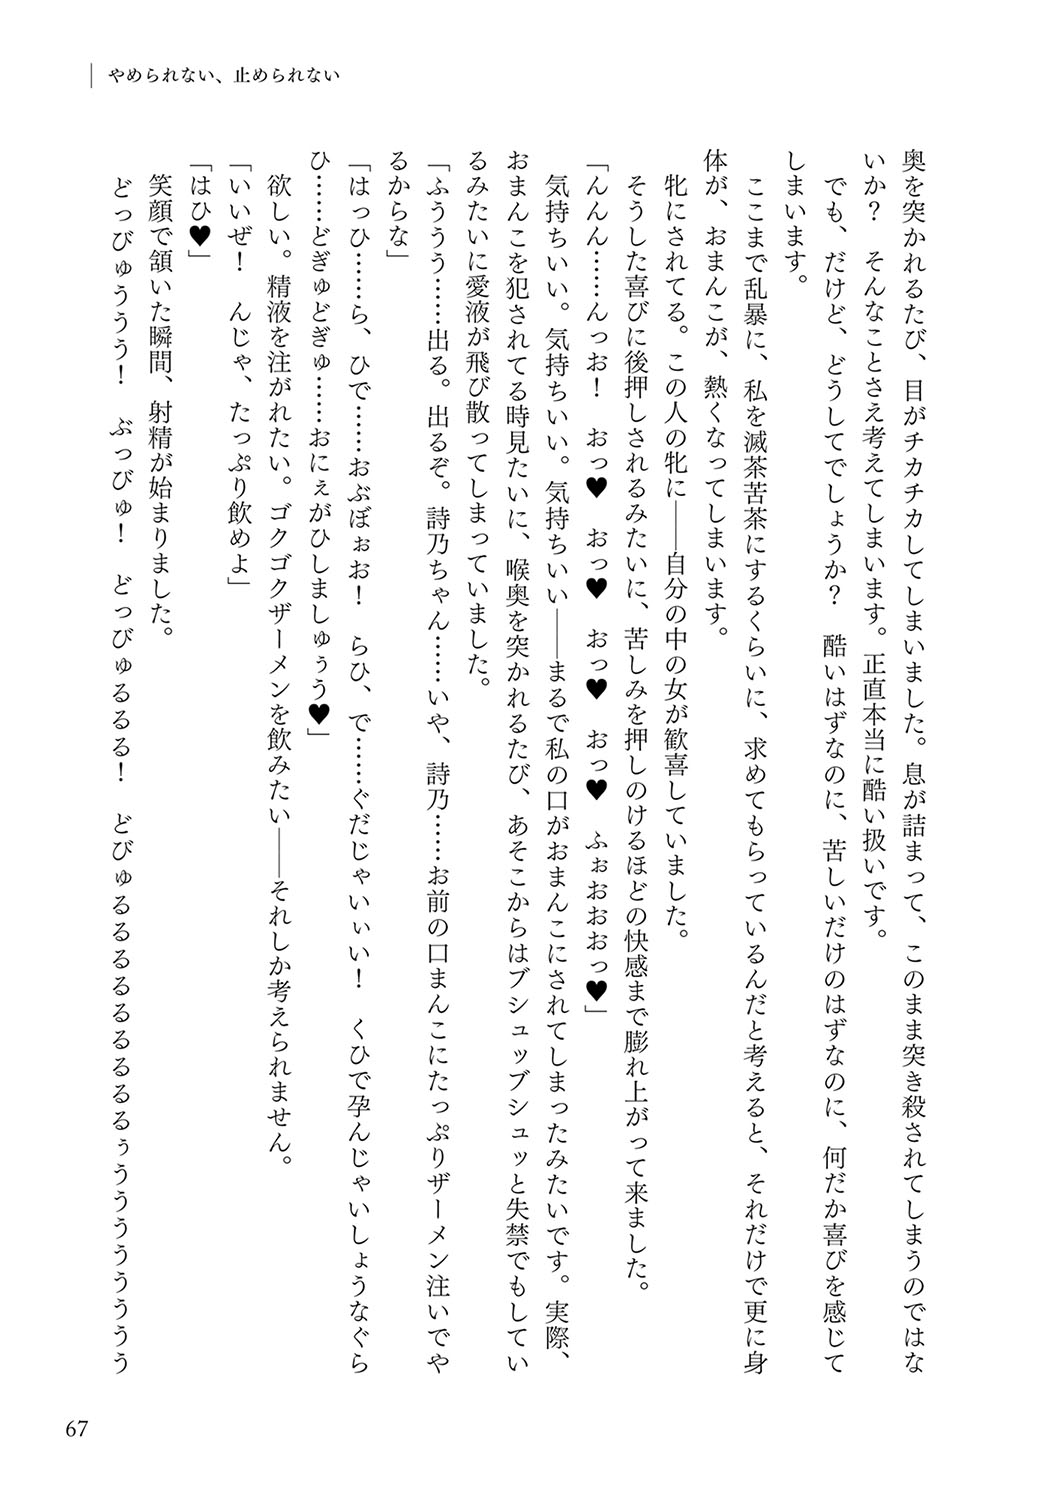 やめられない、止められない
奥を突かれるたび、目がチカチカしてしまいました。息が詰まって、このまま突き殺されてしまうのではな
いか？　そんなことさえ考えてしまいます。正直本当に酷い扱いです。
でも、だけど、どうしてでしょうか？　酷いはずなのに、苦しいだけのはずなのに、何だか喜びを感じて
しまいます。
ここまで乱暴に、私を滅茶苦茶にするくらいに、求めてもらっているんだと考えると、それだけで更に身
体が、おまんこが、熱くなってしまいます。
牝にされてる。この人の牝に――自分の中の女が歓喜していました。
そうした喜びに後押しされるみたいに、苦しみを押しのけるほどの快感まで膨れ上がって来ました。
「んんん……んっお！　おっ♥　おっ♥　おっ♥　おっ♥　ふぉおおおっ♥」
気持ちいい。気持ちいい。気持ちいい――まるで私の口がおまんこにされてしまったみたいです。実際、
おまんこを犯されてる時見たいに、喉奥を突かれるたび、あそこからはブシュッブシュッと失禁でもしてい
るみたいに愛液が飛び散ってしまっていました。
「ふううう……出る。出るぞ。詩乃ちゃん……いや、詩乃……お前の口まんこにたっぷりザーメン注いでや
るからな」
「はっひ……ら、ひで……おぶぼぉお！　らひ、で……ぐだじゃいぃい！　くひで孕んじゃいしょうなぐら
ひ……どぎゅどぎゅ……おにぇがひしましゅぅう♥」
欲しい。精液を注がれたい。ゴクゴクザーメンを飲みたい――それしか考えられません。
「いいぜ！　んじゃ、たっぷり飲めよ」
「はひ♥」
笑顔で頷いた瞬間、射精が始まりました。
どっびゅううう！　ぶっびゅ！　どっびゅるるる！　どびゅるるるるるるるるぅうううううううう
67